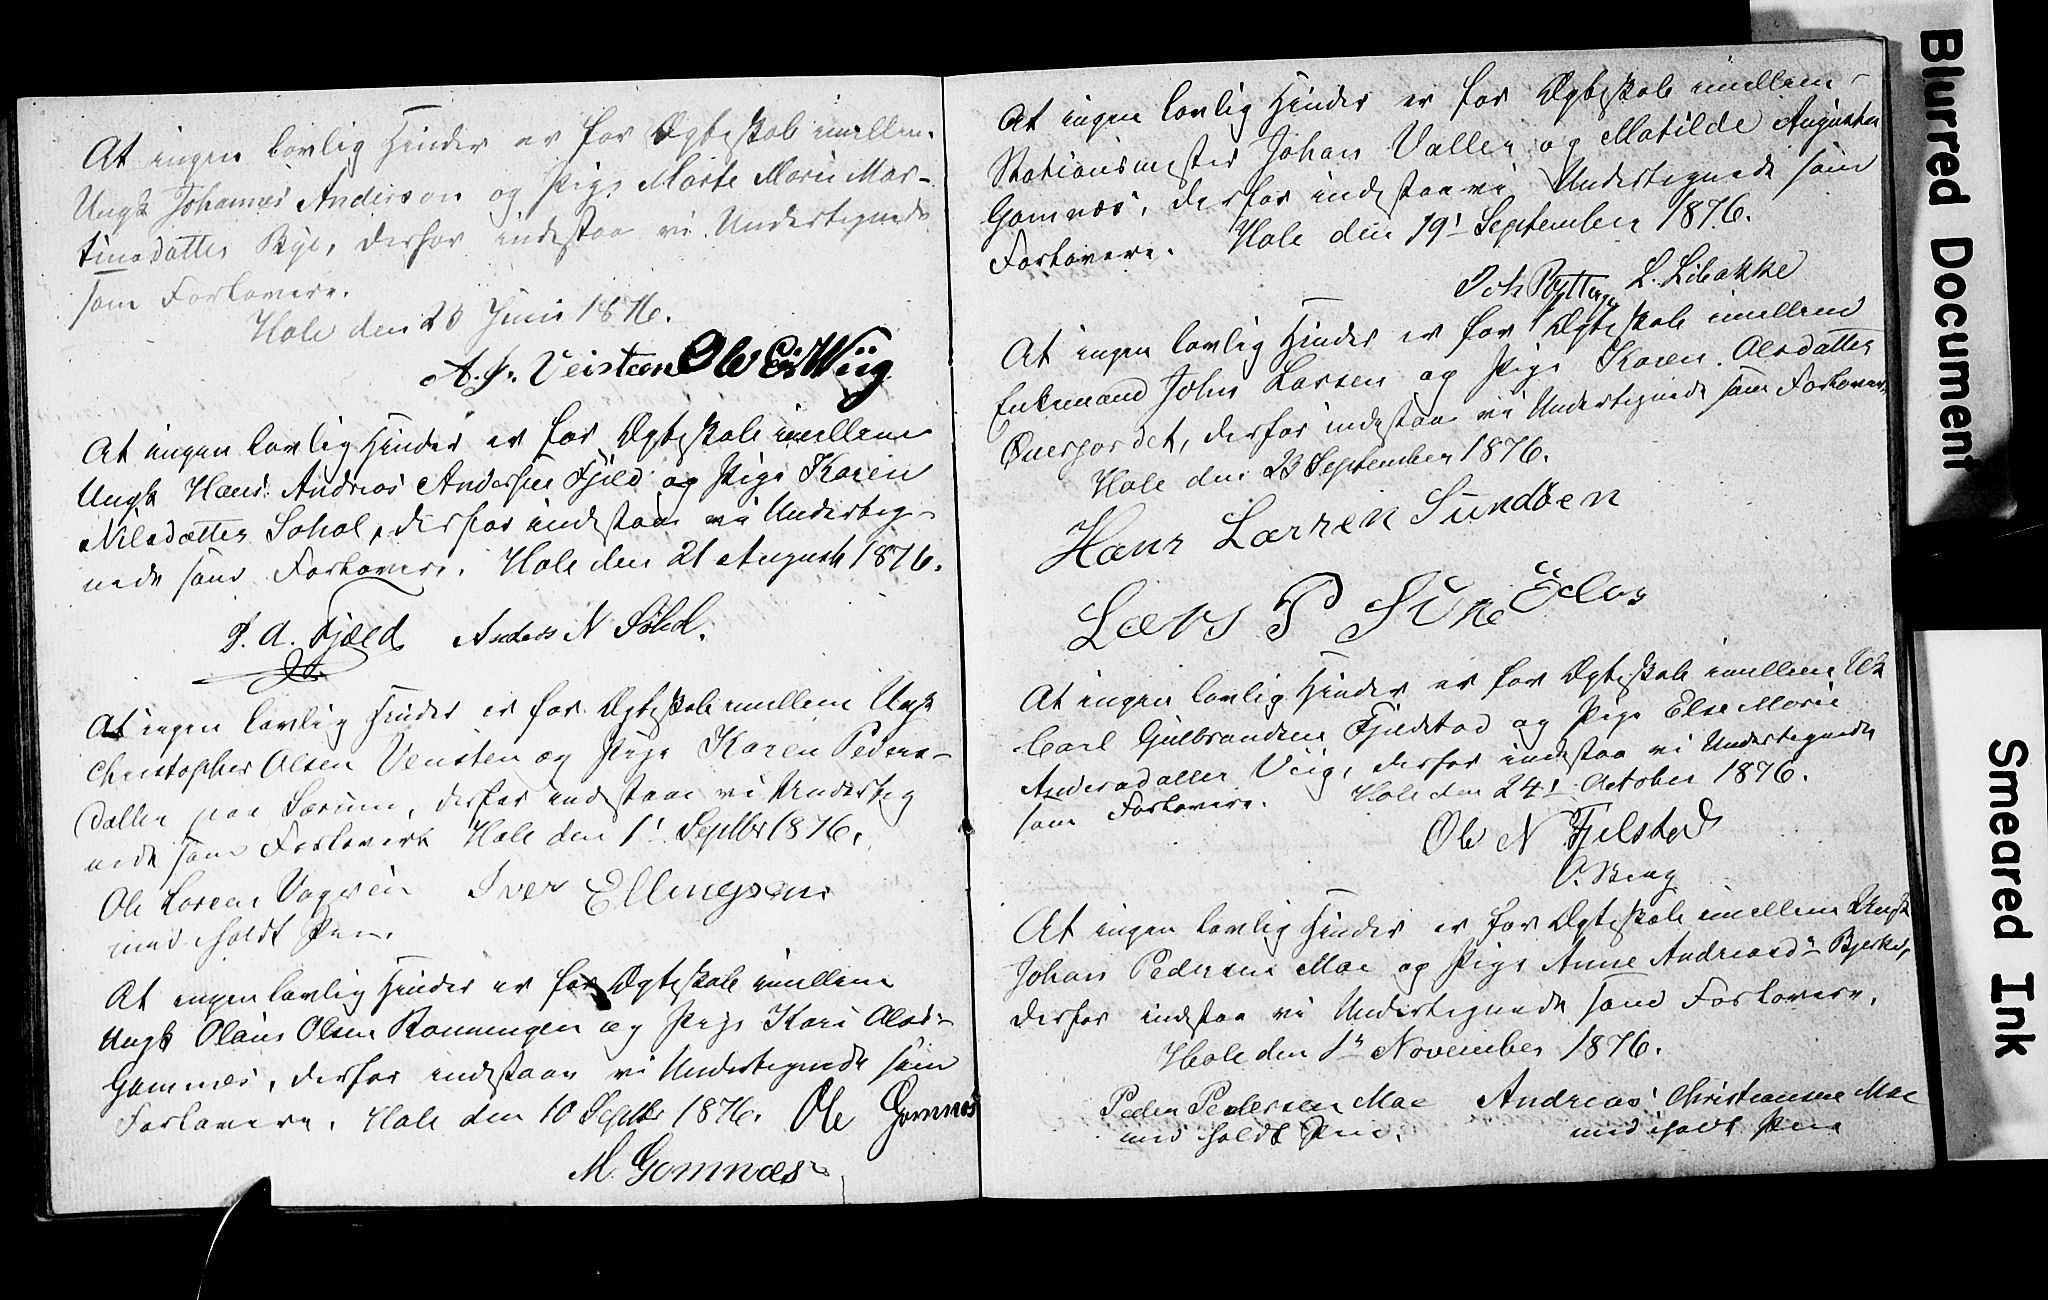 At ingen lovlig Hinder er for Ægteskab imellem
Ungk Johannes Anderson og Pige Marte Marie Mar-
tinsdatter Bye, derfor indestaa vi Undertegnede
som Forlovere.
Hole den 23 Juni 1876.
A. J. Veisteen Ole Er Wiig
At ingen lovlig Hinder er for Ægteskab imellem
Ungk Hans Andreas Andersen Fjeld og Pige Karen
Nilsdatter Sohol, derfor indestaa vi Underteg-
nede som Forlovere. Hole den 21 August 1876.
P. A. Fjæld Anders N Søhol.
At ingen lovlig Hinder er for Ægteskab imellem Ungk
Christopher Olsen Vensten og Pige Karen Peders-
datter paa Sørum, derfor indestaa vi Underteg
nede som Forlovere Hole den 1' Septbr 1876.
Ole Larsen Iver Ellingsen
med iholdt Pen.
At ingen lovlig Hinder er for Ægteskab imellem
Ungk Olaus Olsen Rønningen og Pige Kari Olsd-
Gomnæs, derfor indestaa vi Undertegnede som
Forlovere. Hole den 10 Septbr 1876. Ole Gomnæs
M. Gomnæs
At ingen lovlig Hinder er for Ægteskab imellem
Stationsmester Johan Valler og Matilde Augusta
Gomnæs, derfor indestaa vi Undertegnede som
Forlovere. Hole den 19' September 1876.
Joh Pytter L. Libakke
At ingen lovlig Hinder er for Ægteskab imellem
Enkemand Johs Larsen og Pige Karen Olsdatter
Øvergordet, derfor indestaa vi Undertegnede som Forlovere
Hole den 23 September 1876.
Hans Larsen Sundøen
Lars P
At ingen lovlig Hinder er for Ægteskab imellem Uk
Carl Gulbrandsen Fjeldstad og Pige Else Marie
Andersdatter Viig, derfor indestaa vi Undertegnede
som Forlovere. Hole den 24' October 1876.
Ole N Fjelstad
O. Berg
At ingen lovlig Hinder er for Ægteskab imellem Ungk
Johan Pedersen Moe og Pige Anne Andreasd' Bjerke,
derfor indestaa vi Undertegnede som Forlovere.
Hole den 1' November 1876.
Peder Pedersen Moe Andreas Christiansen Moe
med iholdt Pen. med iholdt Pen
Blurred Document
Smeared Ink